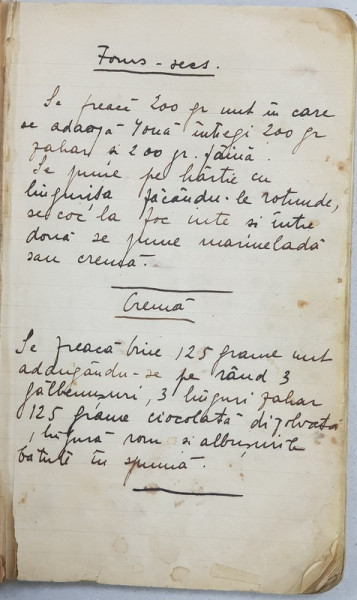 Fours-secs.
Se freacă 200 gr unt în care
se adaogă 4 ouă întregi 200 gr
zahar si 200 gr. făină.
Se pune pe hârtie cu
lingurița făcându-le rotunde,
se coc la foc iute si între
două se pune marmeladă
sau cremă.
Cremă
Se freacă bine 125 grame unt
adăugându-se pe rând 3
gălbenușuri, 3 linguri zahar
125 grame ciocolată dizolvată
, lingură rom si albușurile
bătute în spumă.